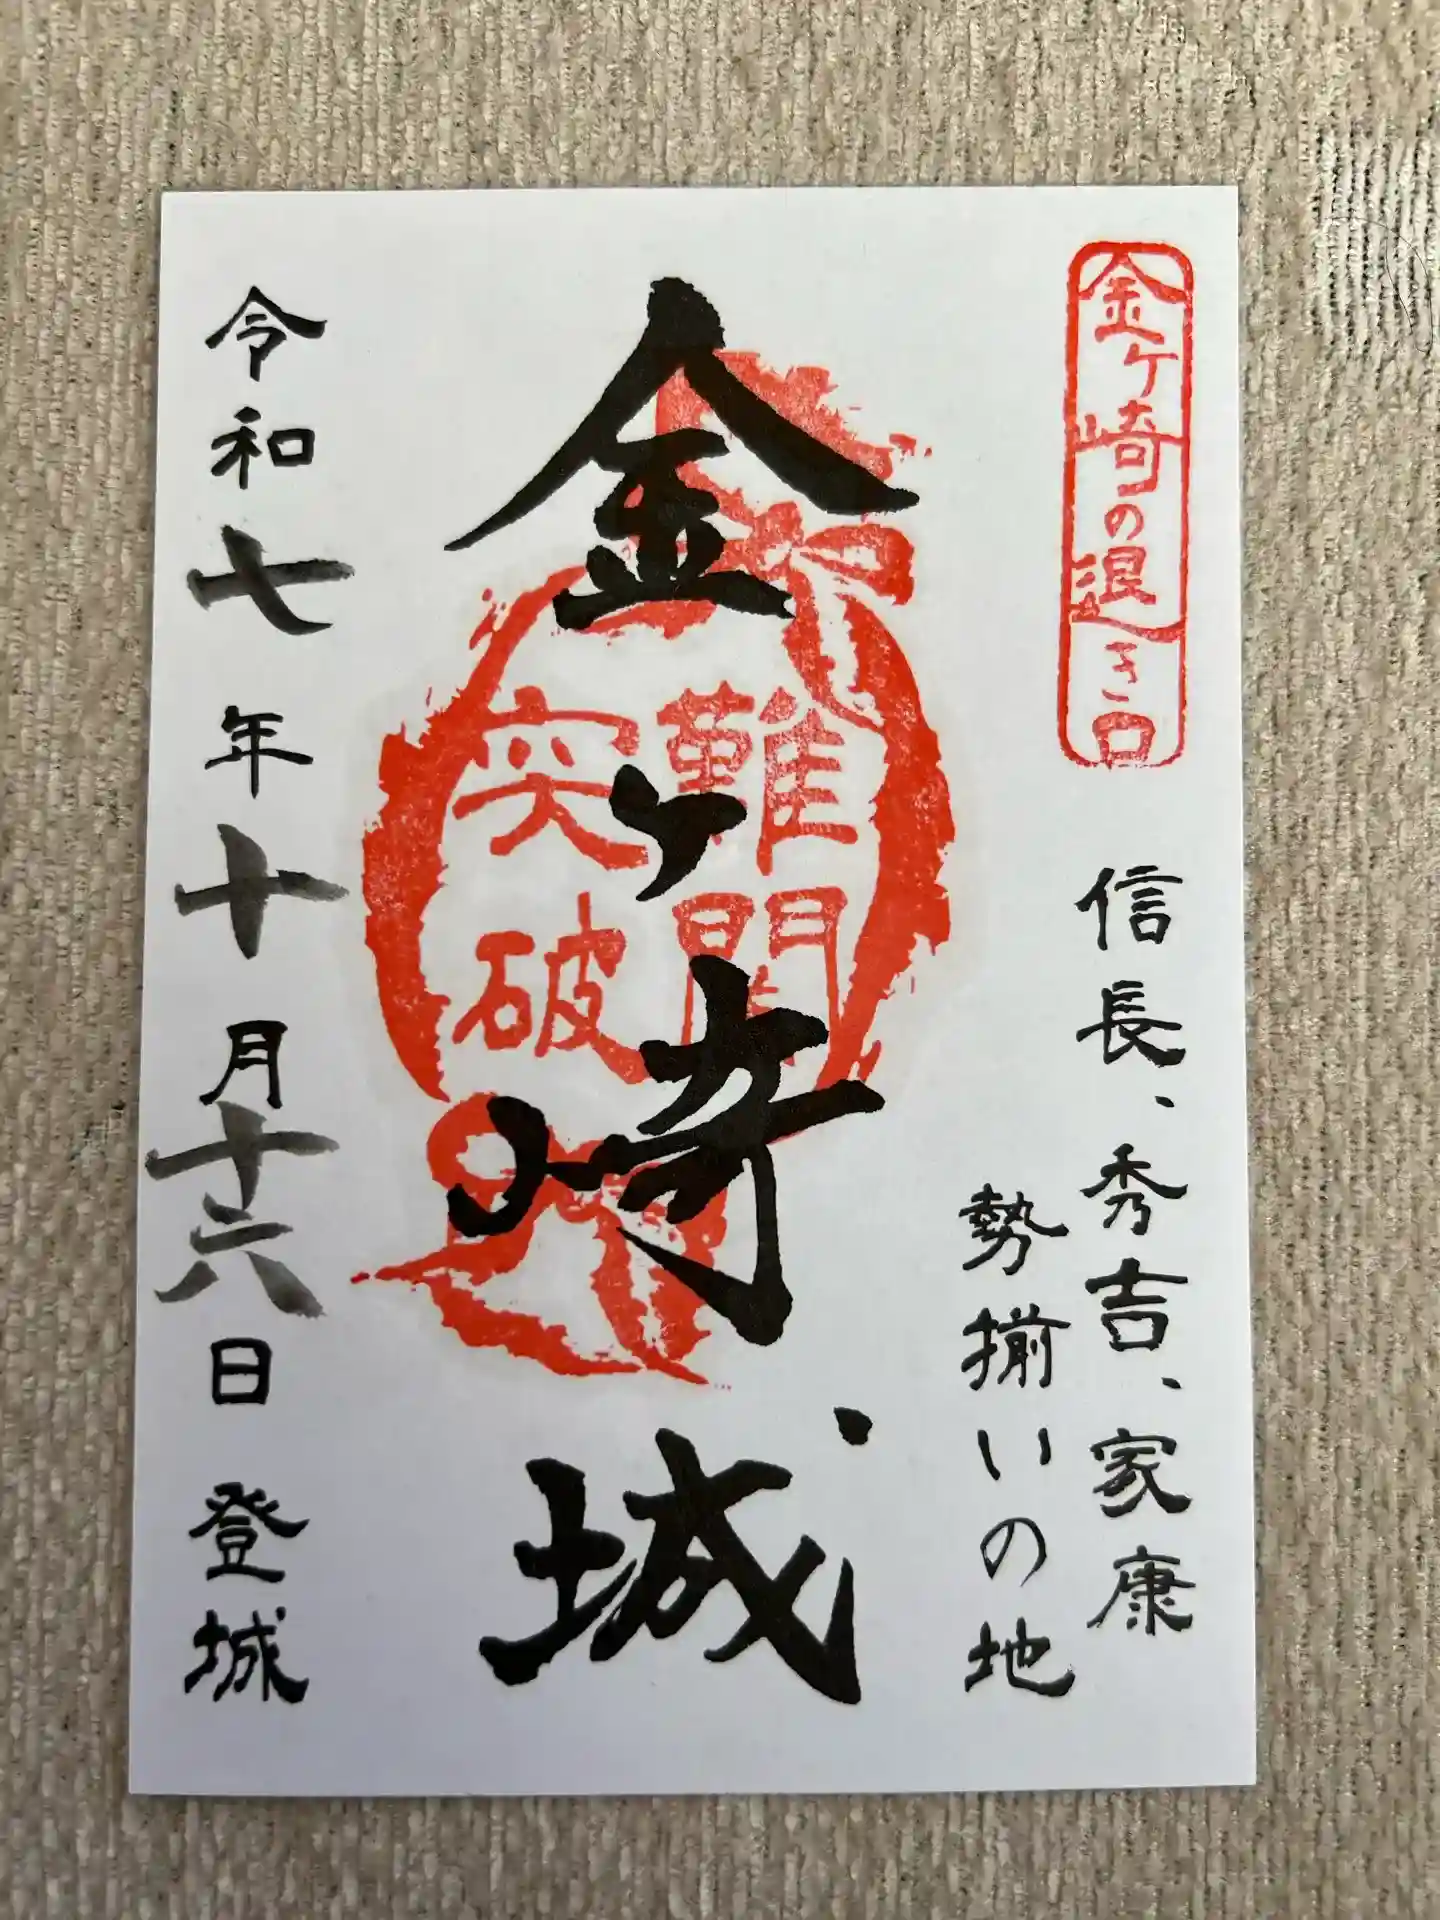 金ヶ崎の退き口
信長、秀吉、家康
勢揃いの地
金ヶ崎城
難関
突破
令和七年十月十六日 登城